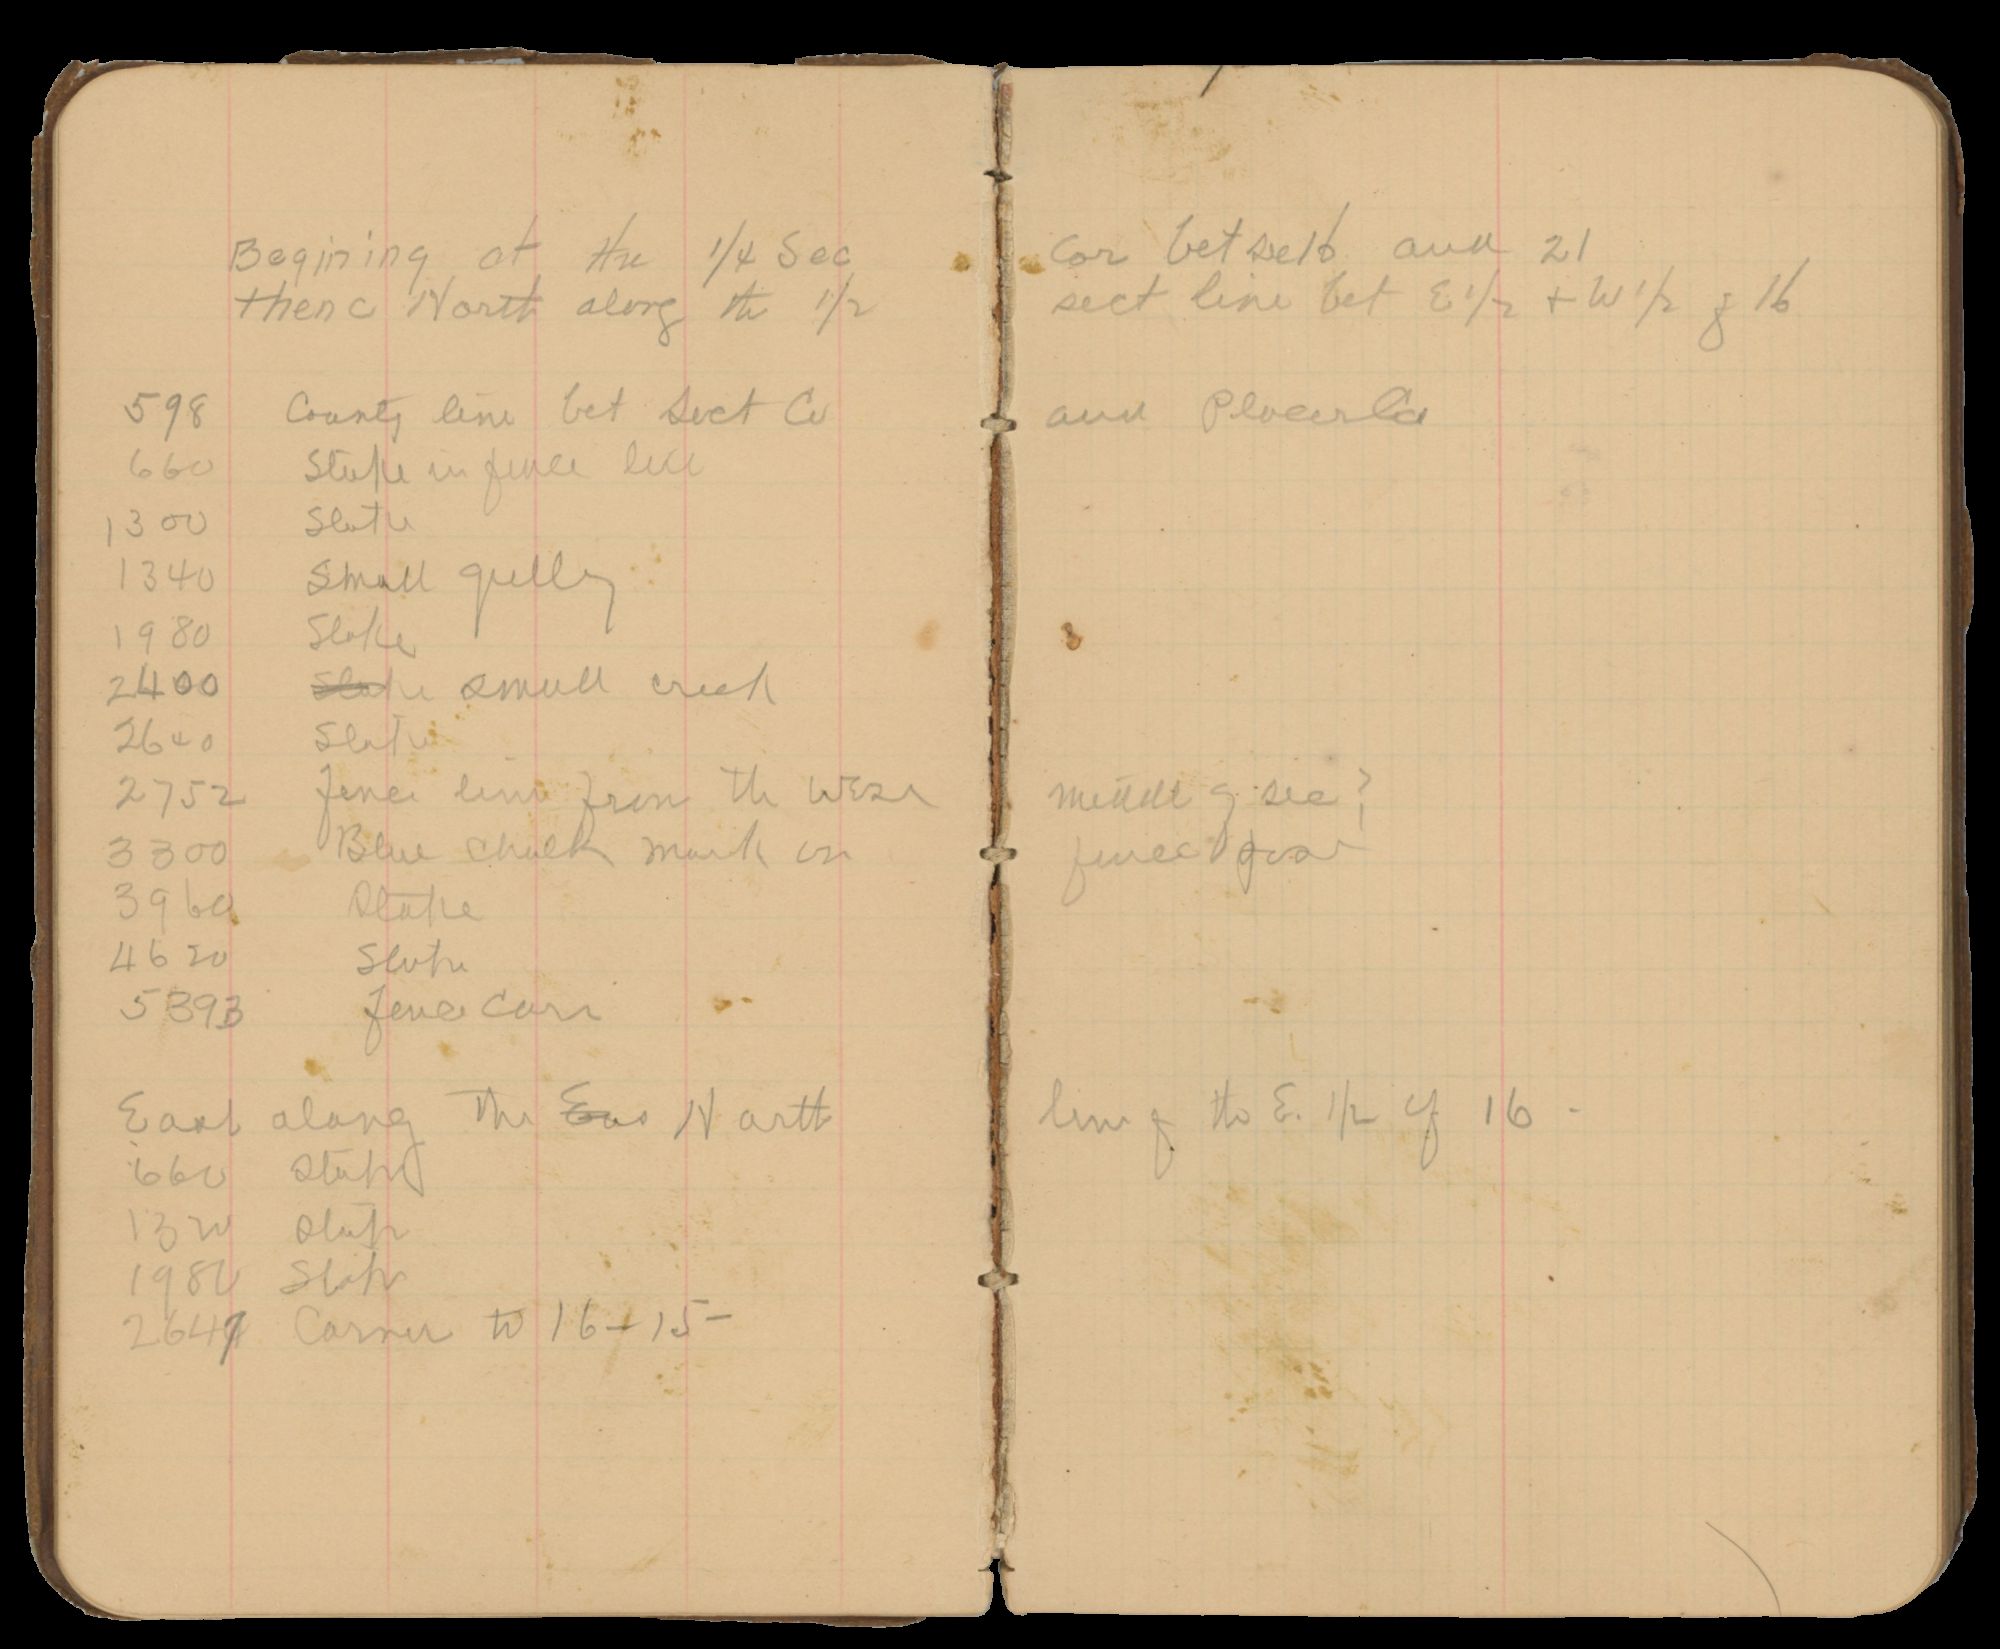 Begining at the 1/4 Sec cor bet sec 16 and 21
thenc North along the 1/2 sect line bet E 1/2 + W 1/2 of 16
598 County line bet Sact Co and Placer Co
660 Stake in fence line
1300 Stake
1340 Small gully
1980 Stake
2400 Stake small creek
2640 Stake
2752 Fence line from the West middle of sec?
3300 Blue chalk mark on fence post
3960 Stake
4620 Stake
5393 Fence Corr
East along the Eas North line of the E. 1/2 of 16 -
660 Stake
1320 Stake
1980 Stake
2647 Corner to 16-15-